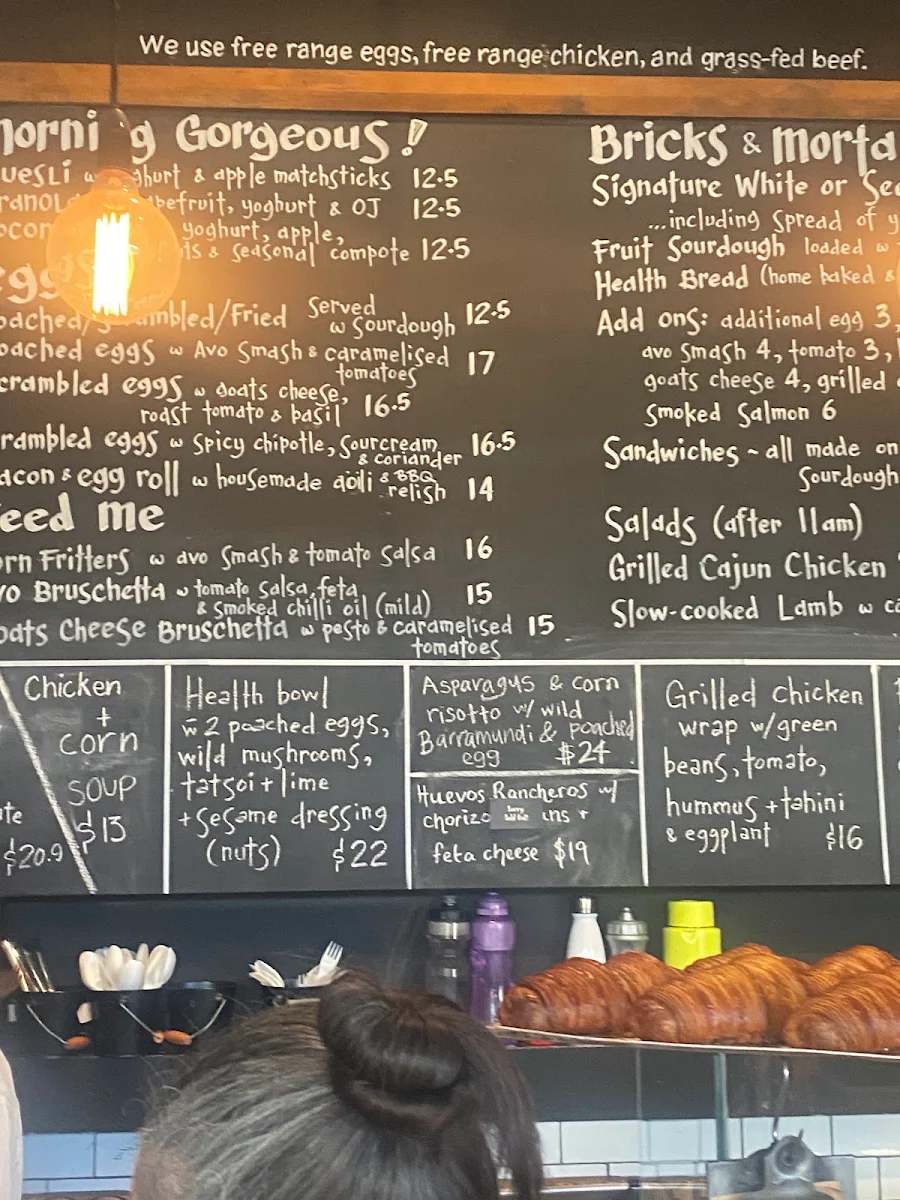 We use free range eggs, free range chicken, and grass-fed beef.
Gorgeous!
yoghurt & apple matchsticks 12.5
yoghurt & OJ 12.5
yoghurt, apple,
& seasonal compote 12.5
/Fried Served
w Sourdough 12.5
eggs w Avo Smash & caramelised
tomatoes 17
eggs w goats cheese,
roast tomato & basil 16.5
eggs w spicy chipotle, sourcream
& coriander 16.5
& egg roll w housemade aoili & BBQ
relish 14
me
Fritters w avo smash & tomato salsa 16
Bruschetta w tomato salsa, feta
& smoked chilli oil (mild) 15
Cheese Bruschetta w pesto & caramelised
tomatoes 15
Bricks & Morta
Signature White or
...including spread of
Fruit Sourdough loaded w
Health Bread (home baked &
Add ons: additional egg 3,
avo smash 4, tomato 3,
goats cheese 4, grilled
smoked salmon 6
Sandwiches ~ all made on
Sourdough
Salads (after 11am)
Grilled Cajun Chicken
Slow-cooked Lamb w
$20.9
Chicken
+
corn
soup
$13
Health bowl
w 2 poached eggs,
wild mushrooms,
tatsoi + lime
+ sesame dressing
(nuts) $22
Asparagus & corn
risotto w/ wild
Barramundi & poached
egg $24
Huevos Rancheros w/
chorizo
feta cheese $19
Grilled chicken
wrap w/green
beans, tomato,
hummus + tahini
& eggplant $16